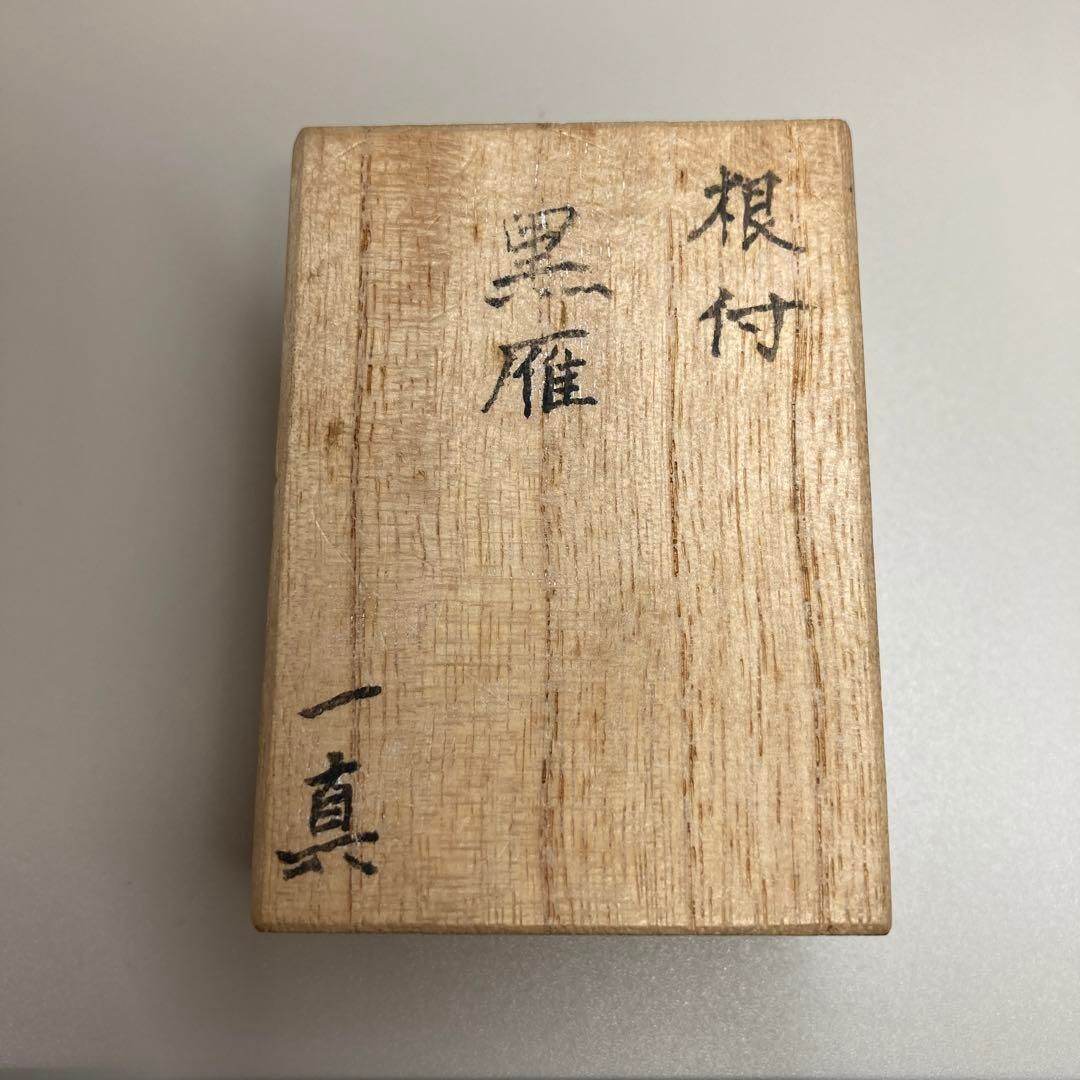 根付
黒雁
一真